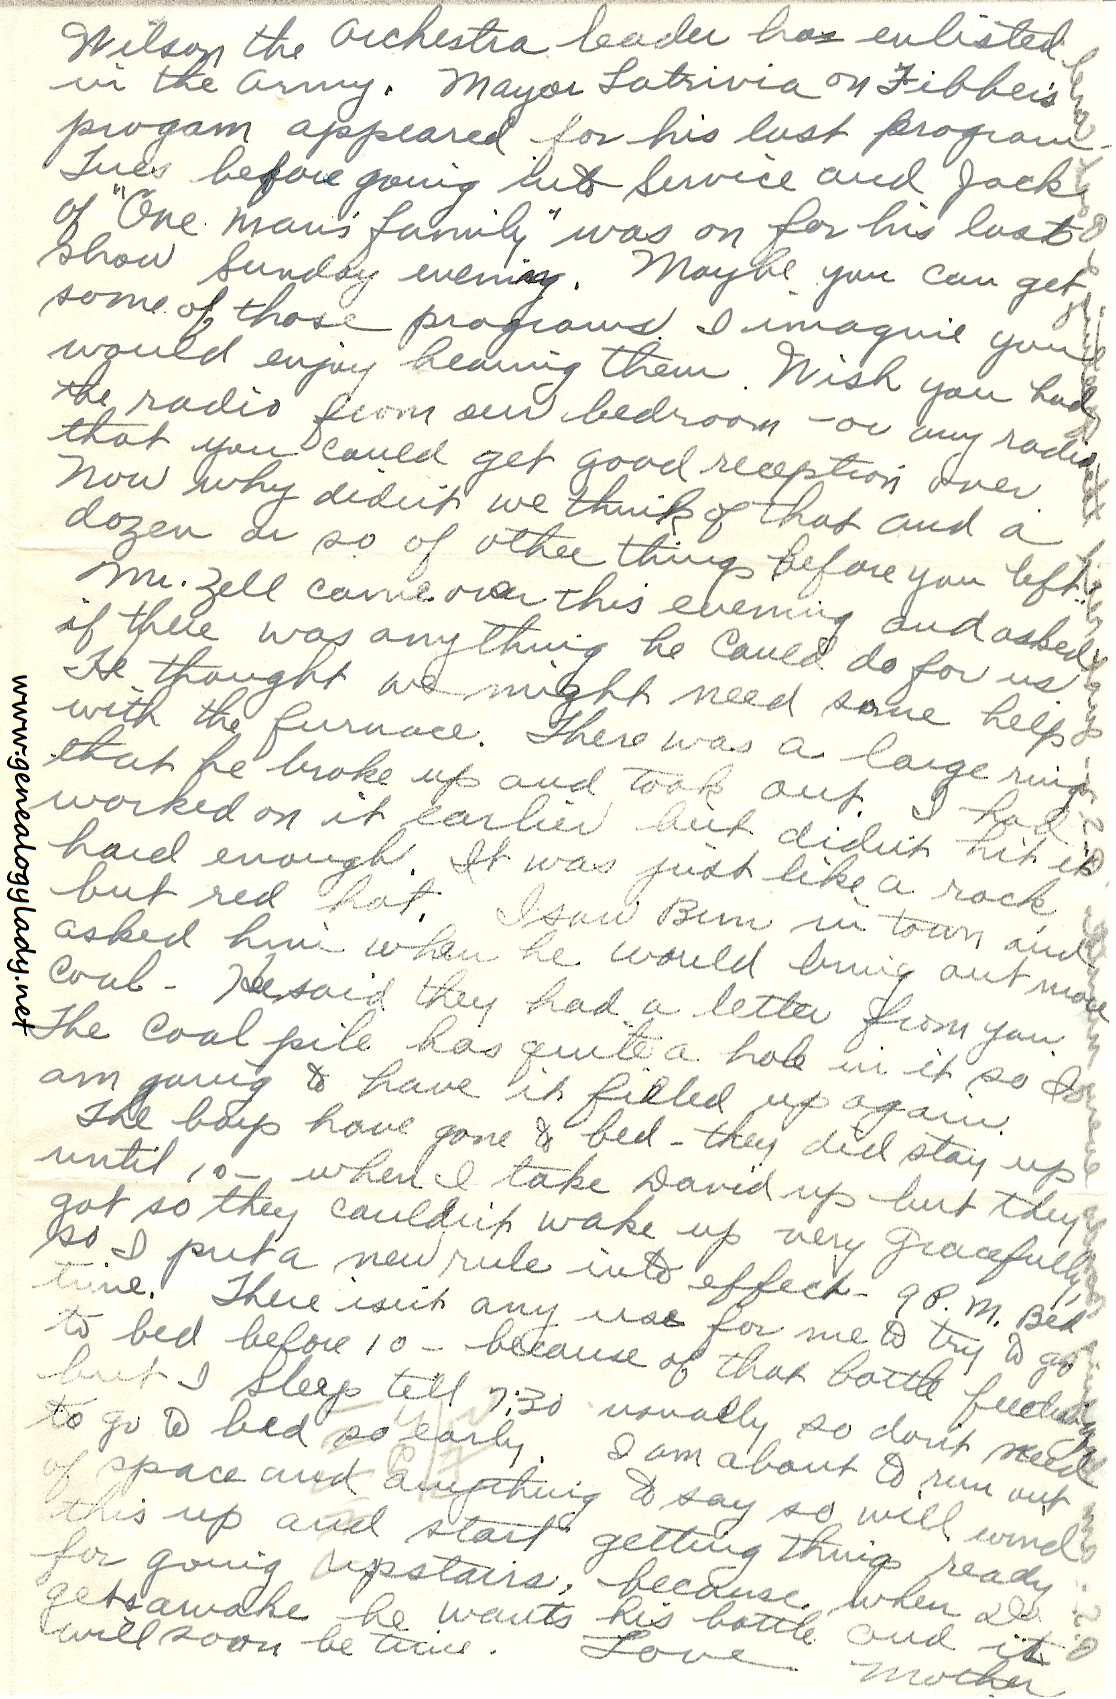 Wilson the orchestra leader has enlisted
in the army. Mayor Latrivia on Fibber's
progam appeared for his last program
Tues before going into Service and Jack
of "One man's family" was on for his last
show Sunday evening. Maybe you can get
some of those programs I imagine you
would enjoy hearing them. Wish you had
the radio from our bedroom - or any radio
that you could get good reception over
Now why didn't we think of that and a
dozen or so of other things before you left.
Mr. Zell came over this evening and asked
if there was anything he could do for us
He thought we might need some help
with the furnace. There was a large ring
that he broke up and took out. I had
worked on it earlier but didn't hit it
hard enough. It was just like a rock
but red hot. I saw Bum in town and
asked him when he would bring out more
coal - He said they had a letter from you
The coal pile has quite a hole in it so I
am going to have it filled up again.
The boys have gone to bed - they did stay up
until 10 - when I take David up but they
got so they couldn't wake up very gracefully
so I put a new rule into effect - 9 P.M. Bed
time. There isn't any use for me to try to go
to bed before 10 - because of that bottle feeding
but I sleep tell 7:30 usually so don't need
to go to bed so early. I am about to run out
of space and anything to say so will wind
this up and start getting things ready
for going upstairs, because when D.
gets awake he wants his bottle and it
will soon be time. Love Mother
www.genealogylady.net